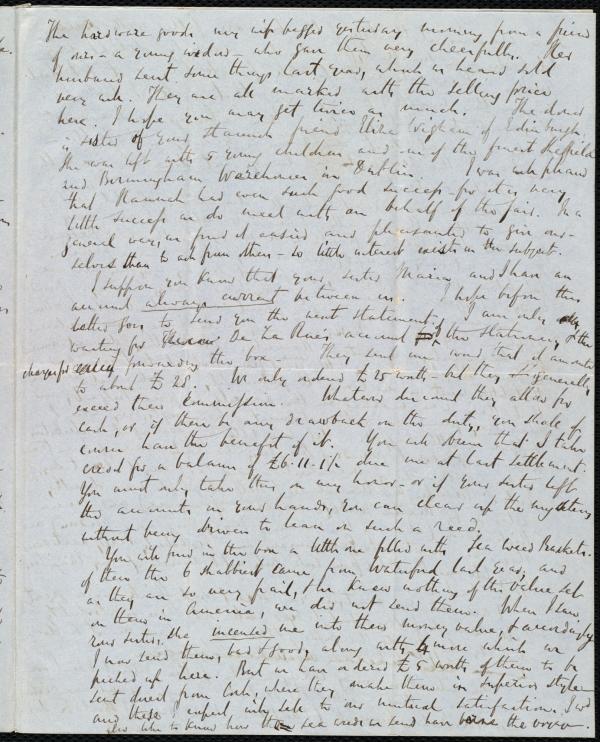 The hardware goods my wife begged yesterday morning from a friend
of ours - a young widow - who gave them very cheerfully. Her
husband sent some things last year, which we heard sold
very well. They are all marked with the selling price
here. I hope you may get twice as much. The donor
is sister of your staunch friend Eliza Wigham of Edinburgh.
She was left with 5 young children and one of the finest Sheffield
and Birmingham Warehouses in Dublin. I was well pleased
that Hannah had even such good success - for it is very
little success we do meet with on behalf of the fair. In a
general way, we find it easier and pleasanter to give our-
selves than to ask from others - so little interest exists in the subject.
I suppose you know that your sister Maria and I have an
account always current between us. I hope before this
letter goes to send you the next statement. I am only
waiting for De La Rue's account of the stationery & the
charges for forwarding the box. They sent me word that it amounted
to about £28. We only ordered £25 worth - but they generally
exceed their commission. Whatever discount they allow for
cash, or if there be any drawback on the duty, you shall of
course have the benefit of it. You will observe that I take
credit for a balance of £6.11.1½ due me at last settlement.
You must only take this on my honor - or if your sister left
the accounts in your hands, you can clear up the mystery
without being driven to lean on such a reed.
You will find in the box a little one filled with Sea Weed Baskets.
Of these the 6 shabbiest came from Waterford last year, and
as they are so very frail, & we knew nothing of the value set
on them in America, we did not send them. When I saw
your sister, she incensed me into their money value, & accordingly
I now send them, bad & good, along with 4 more which we
picked up here. But we have ordered £5 worth of them to be
sent direct from Cork, where they make them in superior style
and these I expect will sell to our mutual satisfaction. I wd
also like to know how the sea weeds we send have borne the voyage.